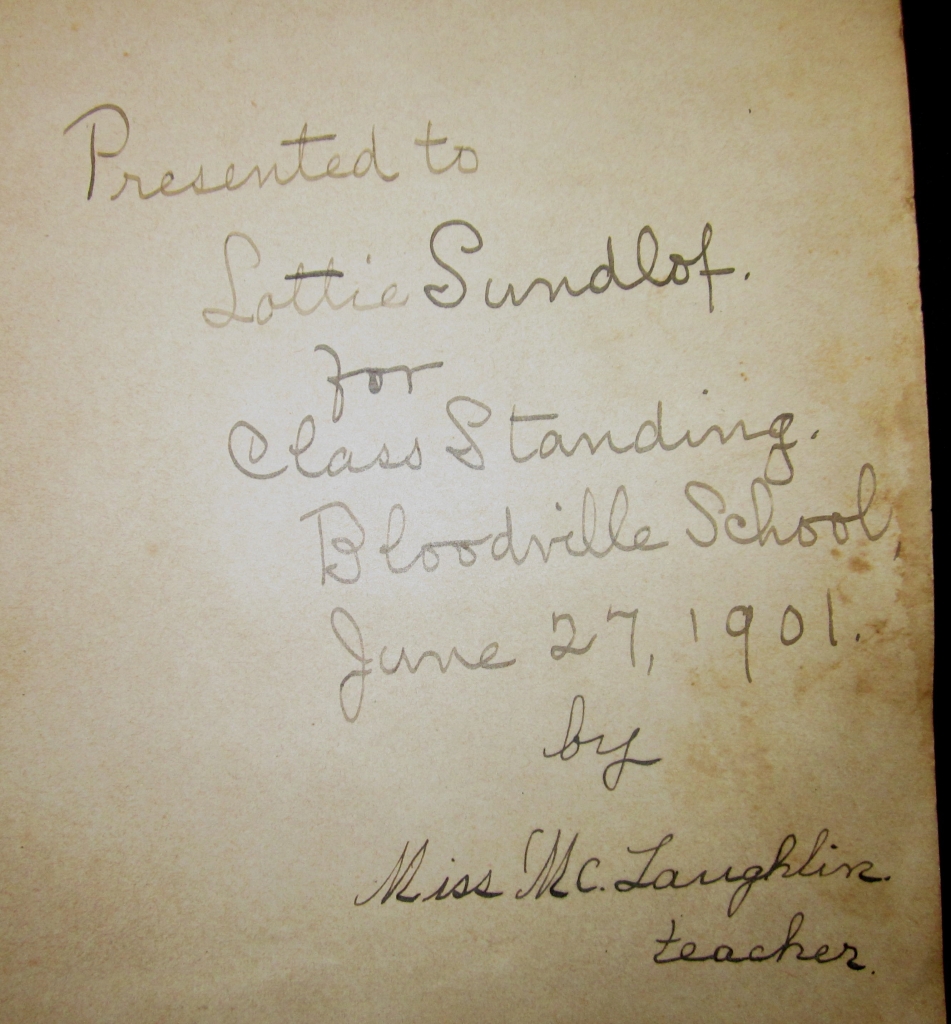 Presented to
Lottie Sundlof.
for
Class Standing.
Bloodville School,
June 27, 1901.
by
Miss Mc. Laughlin.
teacher.